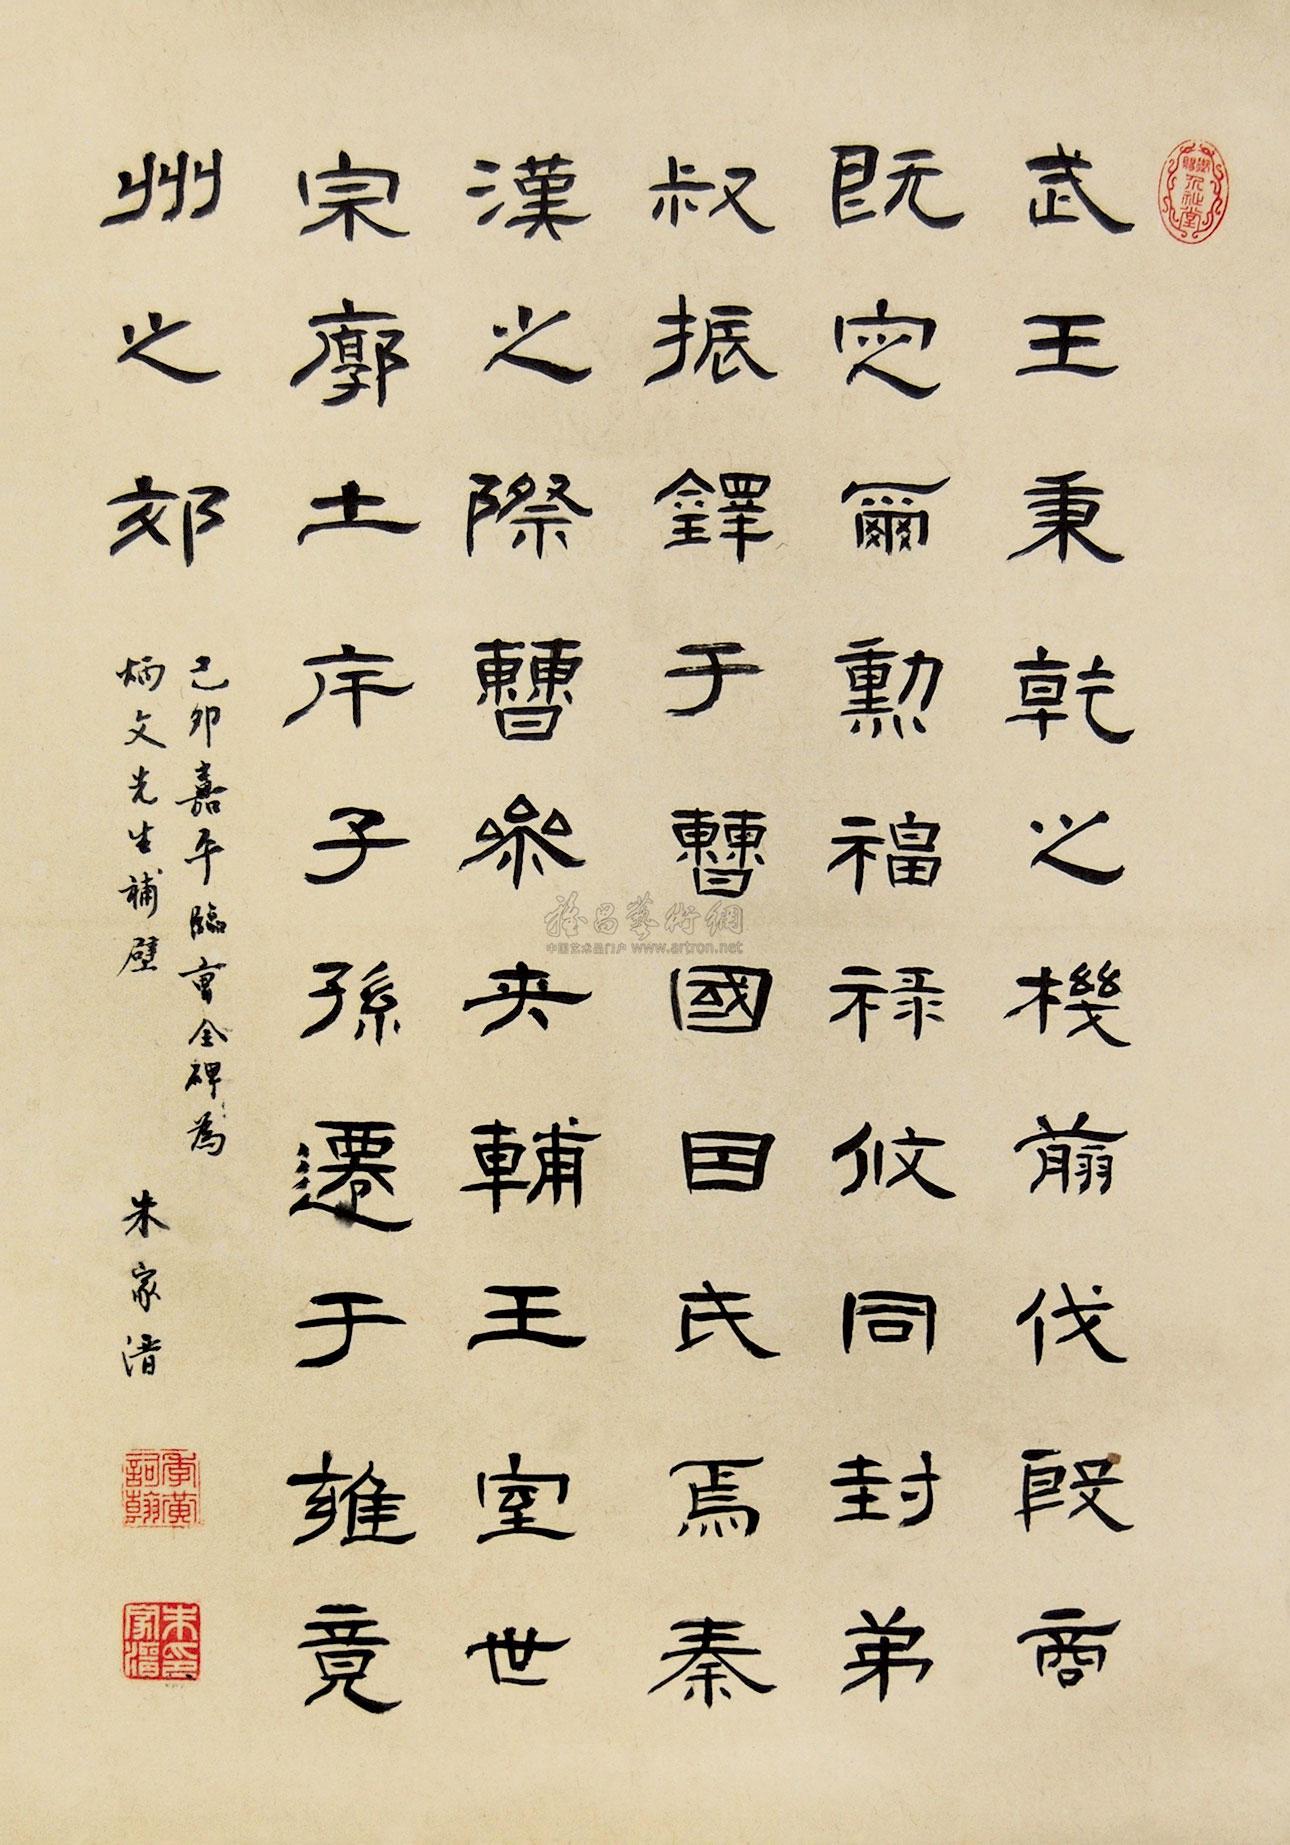 武王秉乾之機翦伐殷商
既定爾勳福祿攸同封弟
叔振鐸于曹國因氏焉秦
漢之際曹參夾輔王室世
宗廓土斥子孫遷于雍竟
州之郊
己卯嘉平臨曹全碑為
炳文先生補壁
朱家溍
季黃詞翰
朱家溍印
雅昌藝術網
中国艺术品门户 www.artron.net